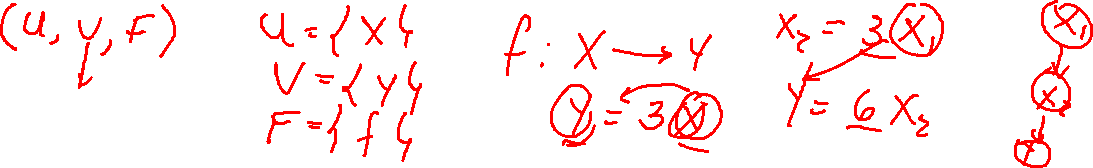 (U, V, F)
U = { X }
V = { Y }
F = { f }
f : X → Y
Y = 3 X
X₂ = 3 X₁
Y = 6 X₂
X₁
X₂
Y